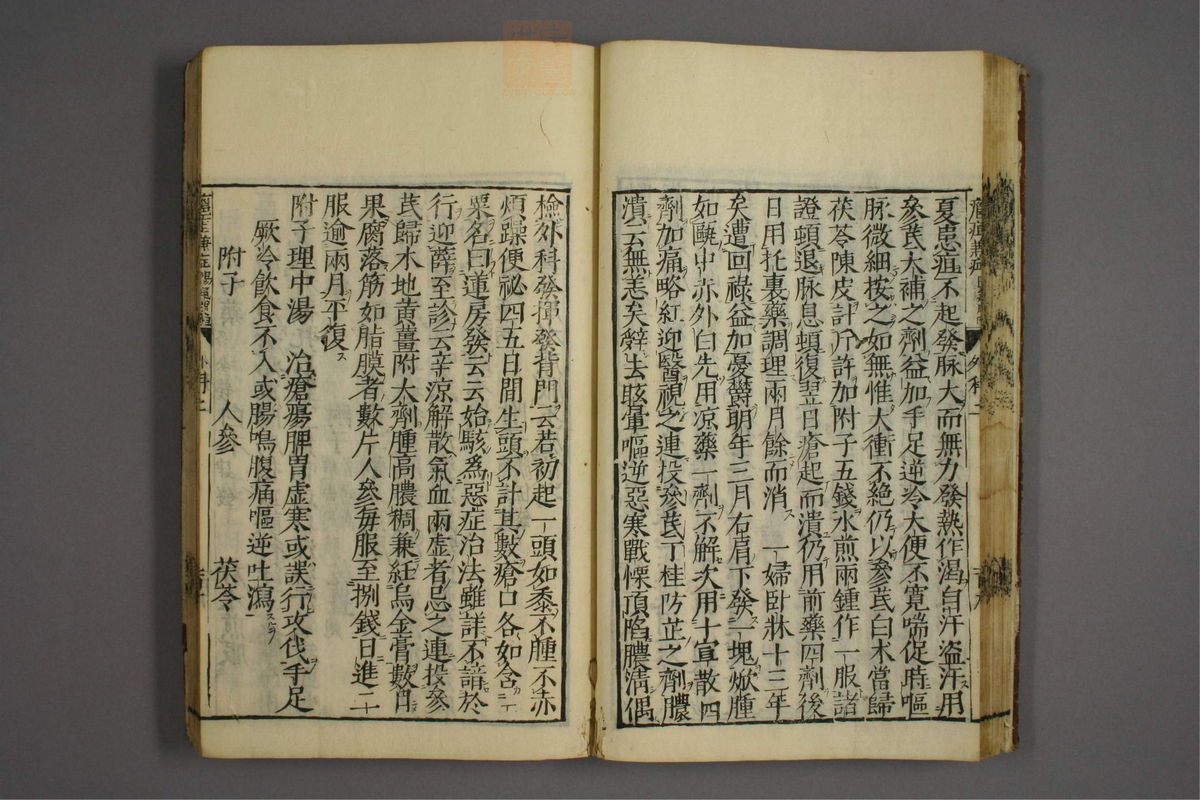 夏患疽不起發脉大而無力發熱作渴自汗盜汗用
參芪大補之劑益加手足逆冷大便不實喘促時嘔
脉微細按之如無惟大衝不絶仍以參芪白木當歸
茯苓陳皮計斤許加附子五錢水煎兩鍾作一服諸
證頓退脉息頓復翌日瘡起而潰仍用前藥四劑後
日用托裏藥調理兩月餘而消 一婦臥牀十三年
矣遭回祿益加憂鬱明年三月右肩下發一塊焮腫
如甌中赤外白先用凉藥一劑不解次用十宣散四
劑加痛略紅迎醫視之連投參芪丁桂防芷之劑膿
潰云無恙矣辭去眩暈嘔逆惡寒戰慄頂陷膿淸偶
檢外科發揮發背門云若初起一頭如黍不腫不赤
煩躁便祕四五日間生頭不計其數瘡口各如含一
粟名曰蓮房發云云始駭爲惡症治法雖詳不諳於
行迎薛至診云辛涼解散氣血兩虛者忌之連投參
芪歸木地黄薑附大劑腫高膿稠兼紝烏金膏數日
果腐落筋如脂膜者數片人參每服至捌錢日進二
服逾兩月平復
附子理中湯 治瘡瘍脾胃虛寒或誤行攻伐手足
厥冷飲食不入或腸鳴腹痛嘔逆吐瀉
附子 人參 茯苓
外科二